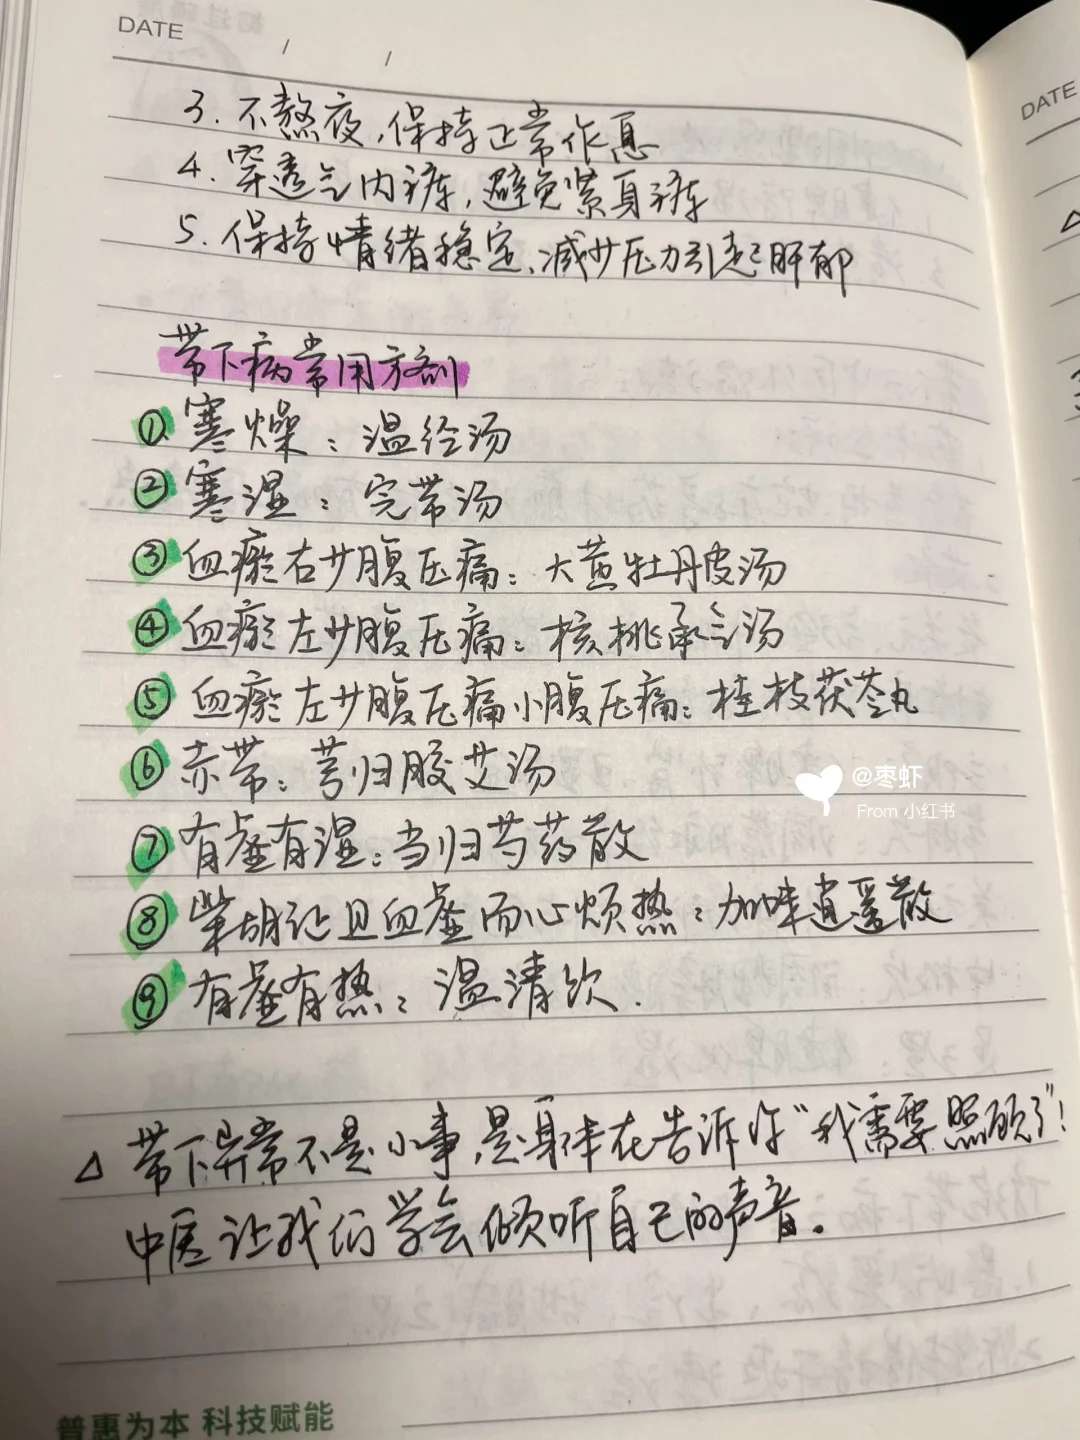 DATE / /
DATE
3. 不熬夜,保持正常作息
4. 穿透气内裤,避免紧身裤
5. 保持情绪稳定,减少压力引起肝郁
带下病常用方剂
① 寒燥:温经汤
② 寒湿:完带汤
③ 血瘀右少腹压痛:大黄牡丹皮汤
④ 血瘀左少腹压痛:核桃承气汤
⑤ 血瘀左少腹压痛小腹压痛:桂枝茯苓丸
⑥ 赤带:芎归胶艾汤
@枣虾
From 小红书
⑦ 有虚有湿:当归芍药散
⑧ 柴胡证且血虚而心烦热:加味逍遥散
⑨ 有虚有热:温清饮.
△ 带下异常不是小事,是身体在告诉你“我需要照顾了”!
中医让我们学会倾听自己的声音。
普惠为本 科技赋能